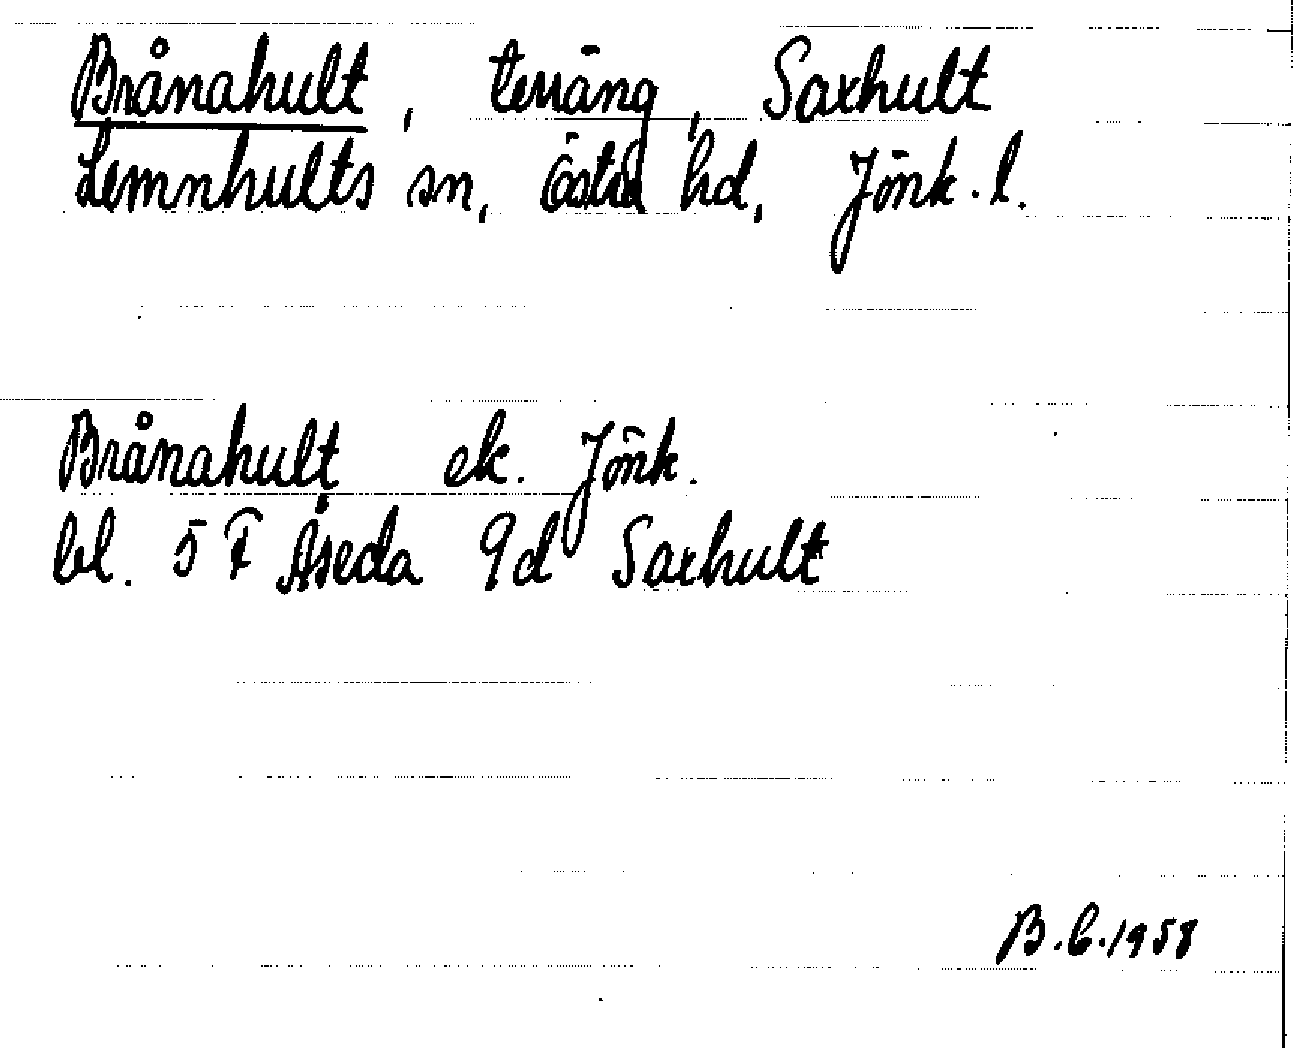 Brånahult, terräng, Saxhult
Lemnhults sn, Östra hd, Jönk. l.
Brånahult ek. Jönk.
bl. 5 F Åseda 9d Saxhult
B.C.1958